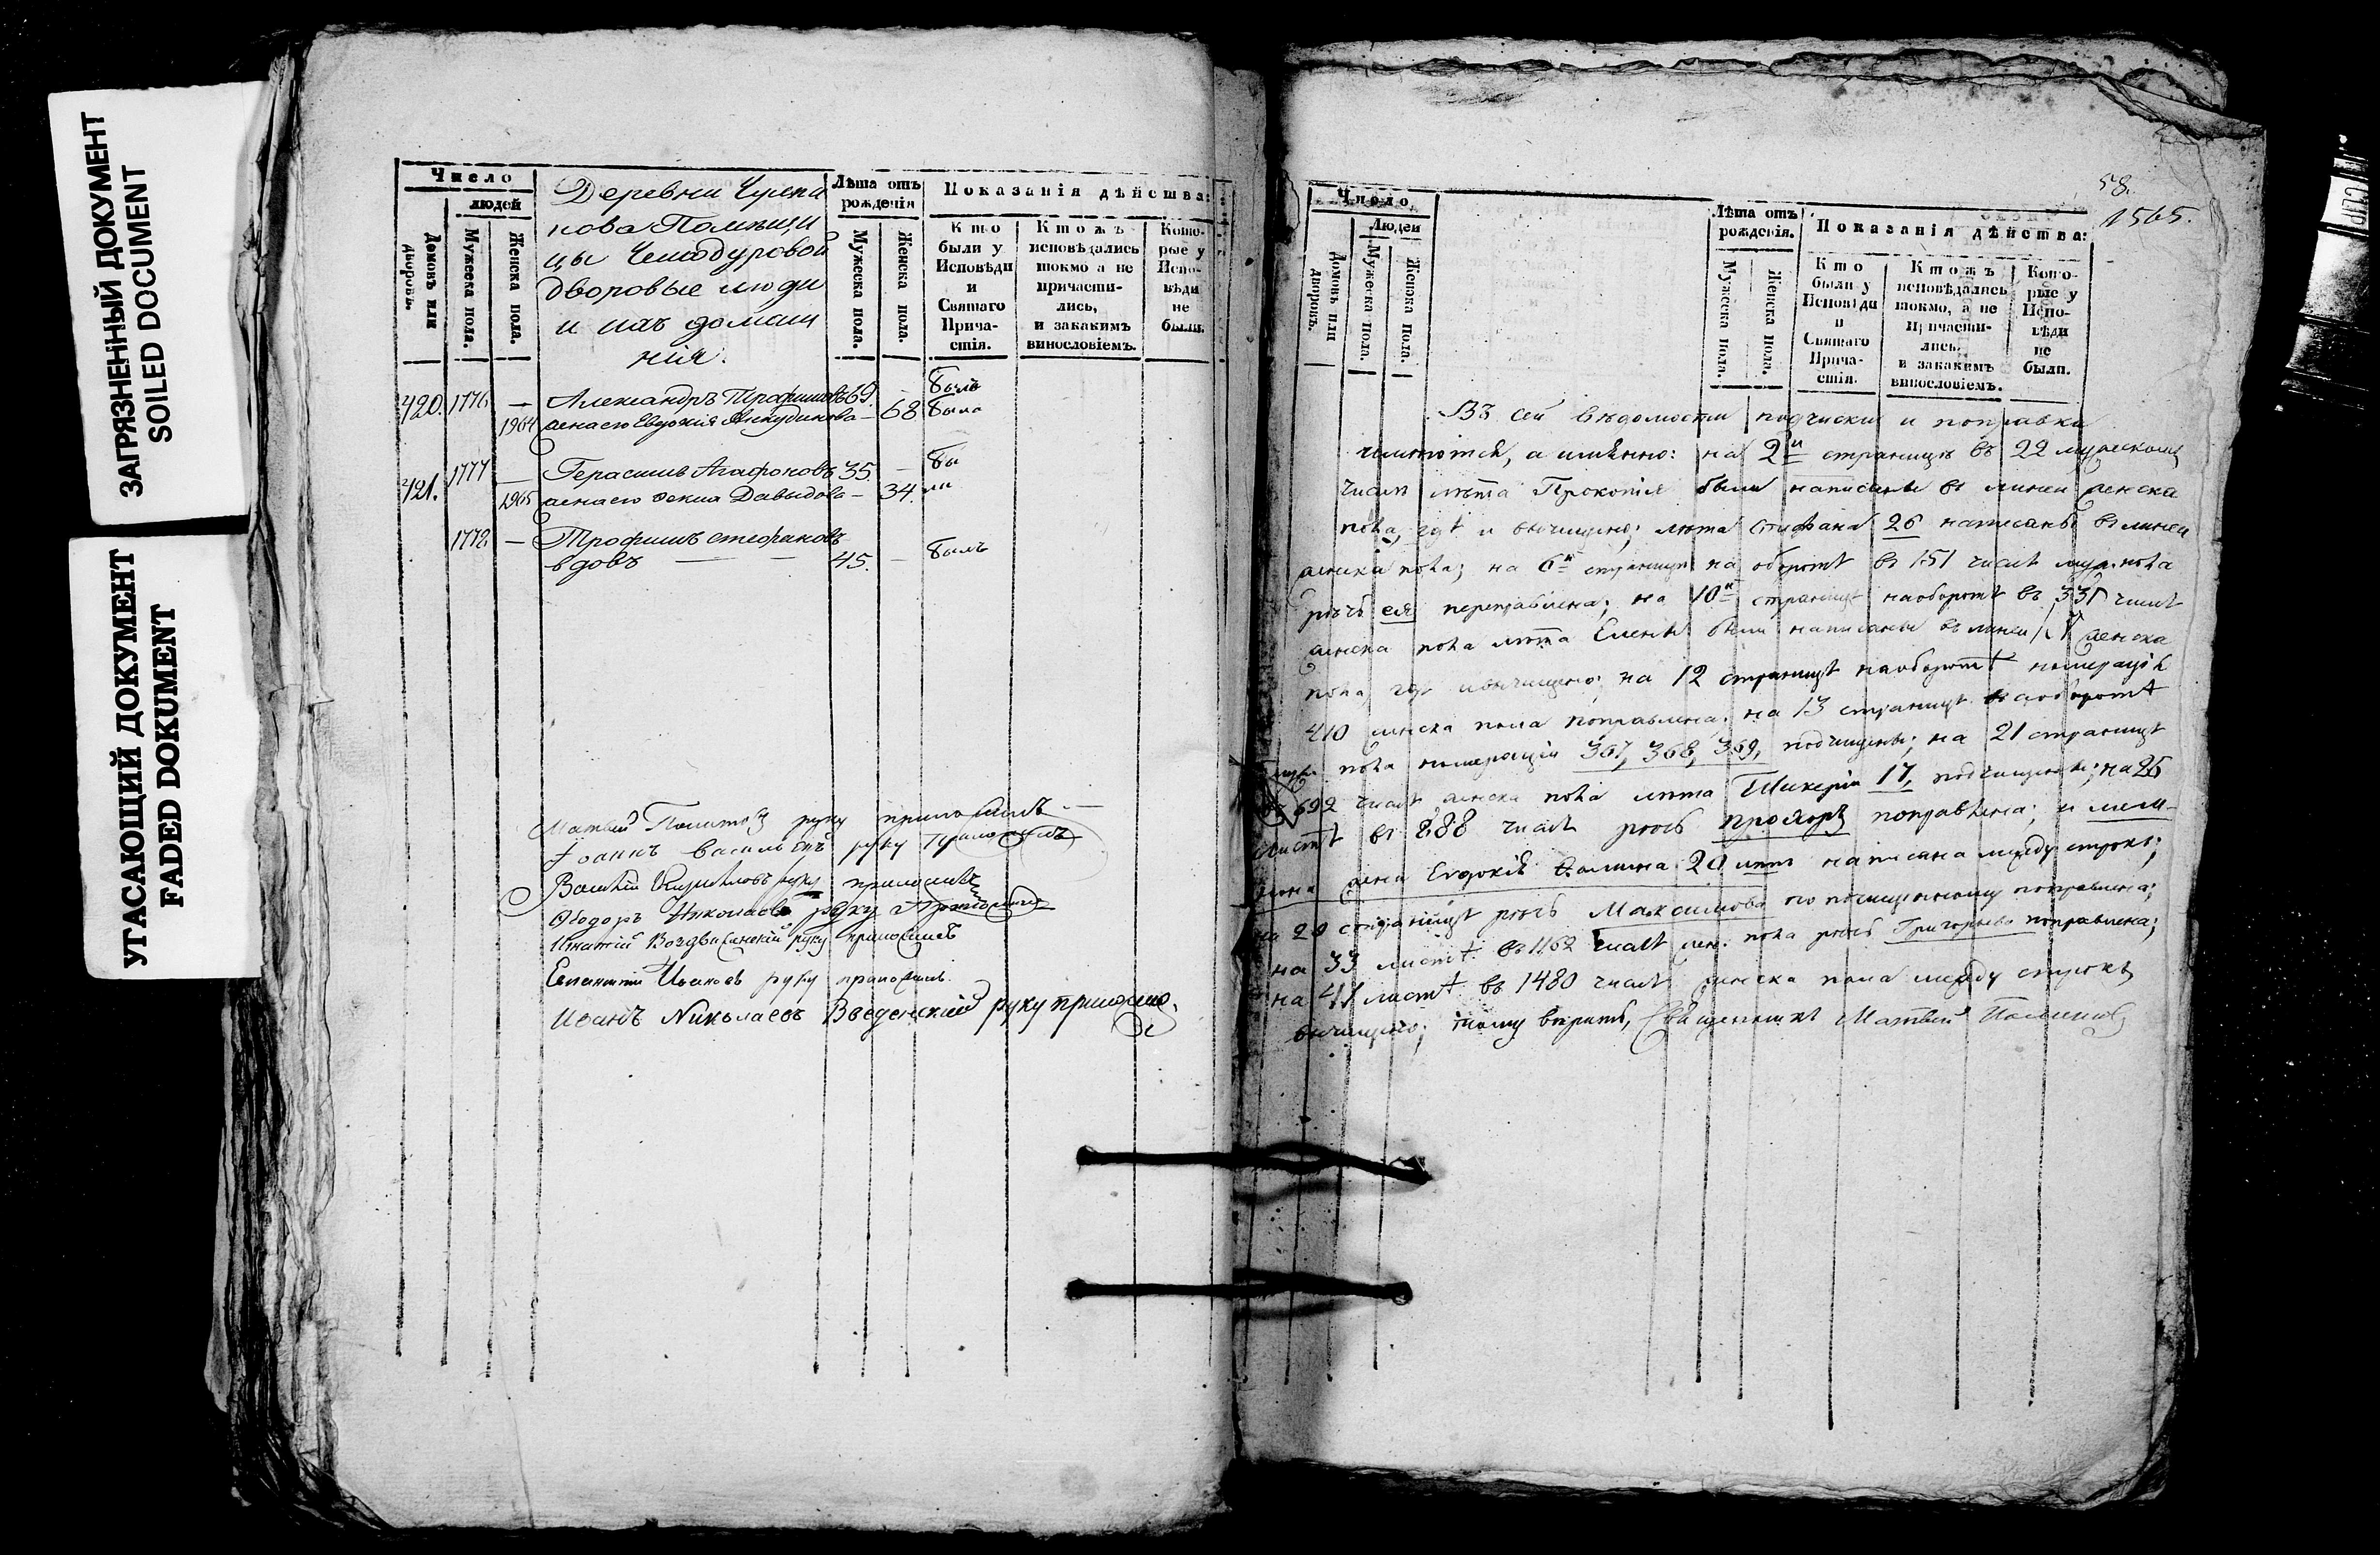 ЗАГРЯЗНЕННЫЙ ДОКУМЕНТ
SOILED DOCUMENT
УГАСАЮЩИЙ ДОКУМЕНТ
FADED DOKUMENT
Число
людей
Домовъ или дворовъ.
Мужеска пола.
Женска пола.
Деревни
нова Помѣщи
цы Чемодуровой
дворовые люди
и ихъ домаш
нія.
Лѣта отъ рожденія
Мужеска пола.
Женска пола.
Показанія дѣйства:
Кто были у Исповѣди и Святаго Прича-стія.
Ктожъ исповѣдались токмо а не причасти-лись, и закакимъ винословіемъ.
Кото-рые у Испо-вѣди не были.
420. 1776 — Александръ Трофимовъ 69. —
1964 жена его Евдокія Анкудинова — 68 была
421. 1777 — Герасимъ Агафоновъ 35. — бы
1965 жена его Ѳекла Давыдова — 34. ли
1778 — Трофимъ Стефановъ
вдовъ — — 45. — былъ
Матвей руку приложилъ
Іоаннъ Васильевъ руку приложилъ
Василій руку приложилъ
Ѳеодоръ Николаевъ руку приложилъ
Игнатій Воздвиженскій руку приложилъ
Ивановъ руку приложилъ
Иванъ Николаевъ Введенскій руку приложилъ
58.
1565.
Число
Людей
Домовъ или дворовъ.
Мужеска пола.
Женска пола.
Лѣта отъ рожденія.
Мужеска пола.
Женска пола.
Показанія дѣйства:
Кто были у Исповѣди и Святаго Прича-стія.
Ктожъ исповѣдались токмо, а не причасти-лись, и закакимъ винословіемъ.
Кото-рые у Испо-вѣди не были.
Въ сей вѣдомости подчистки и поправки
имѣются, а имянно: на 2й страницѣ въ 22 мужескомъ
числѣ лѣта Прокопія были написаны въ линеи женска
пола, гдѣ и вычищено; лѣта Стефана 26 написаны в линеи
женска пола; на 6й страницѣ на оборотѣ въ 151 числѣ муж. пола
рѣчь ея переправлена; на 10й страницѣ на оборотѣ въ 331 числѣ
женска пола лѣта Елены были написаны въ линеи женска
пола, гдѣ и вычищено; на 12 страницѣ на оборотѣ нумерація
410 женска пола поправлена; на 13 страницѣ на оборотѣ
муж. пола нумераціи 367, 368, 369, подчищены; на 21 страницѣ
въ 692 числѣ женска пола лѣта 17, подчищены; на 25
листѣ въ 888 числѣ рѣчь поправлена; и
жена Евдокія 20 лѣтъ написана между строкъ;
на страницѣ рѣчь Максимова по почищенному поправлена;
на 33 листѣ въ 1162 числѣ жен. пола рѣчь Григорьева поправлена;
на 41 листѣ въ 1480 числѣ женска пола между строкъ
вычищено; тому вѣрить, Священникъ Матвей